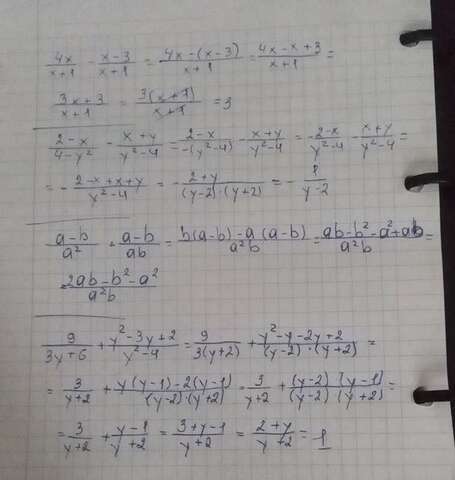 4x/(x+1) - (x-3)/(x+1) = (4x-(x-3))/(x+1) = (4x-x+3)/(x+1) =
(3x+3)/(x+1) = 3(x+1)/(x+1) = 3
(2-x)/(4-y²) - (x+y)/(y²-4) = (2-x)/(-(y²-4)) - (x+y)/(y²-4) = -(2-x)/(y²-4) - (x+y)/(y²-4) =
= -(2-x+x+y)/(y²-4) = -(2+y)/((y-2)·(y+2)) = -1/(y-2)
(a-b)/a² + (a-b)/(ab) = (b(a-b)-a(a-b))/(a²b) = (ab-b²-a²+ab)/(a²b) =
= (2ab-b²-a²)/(a²b)
9/(3y+6) + (y²-3y+2)/(y²-4) = 9/(3(y+2)) + (y²-y-2y+2)/((y-2)·(y+2)) =
= 3/(y+2) + (y(y-1)-2(y-1))/((y-2)·(y+2)) = 3/(y+2) + ((y-2)·(y-1))/((y-2)·(y+2)) =
= 3/(y+2) + (y-1)/(y+2) = (3+y-1)/(y+2) = (2+y)/(y+2) = 1